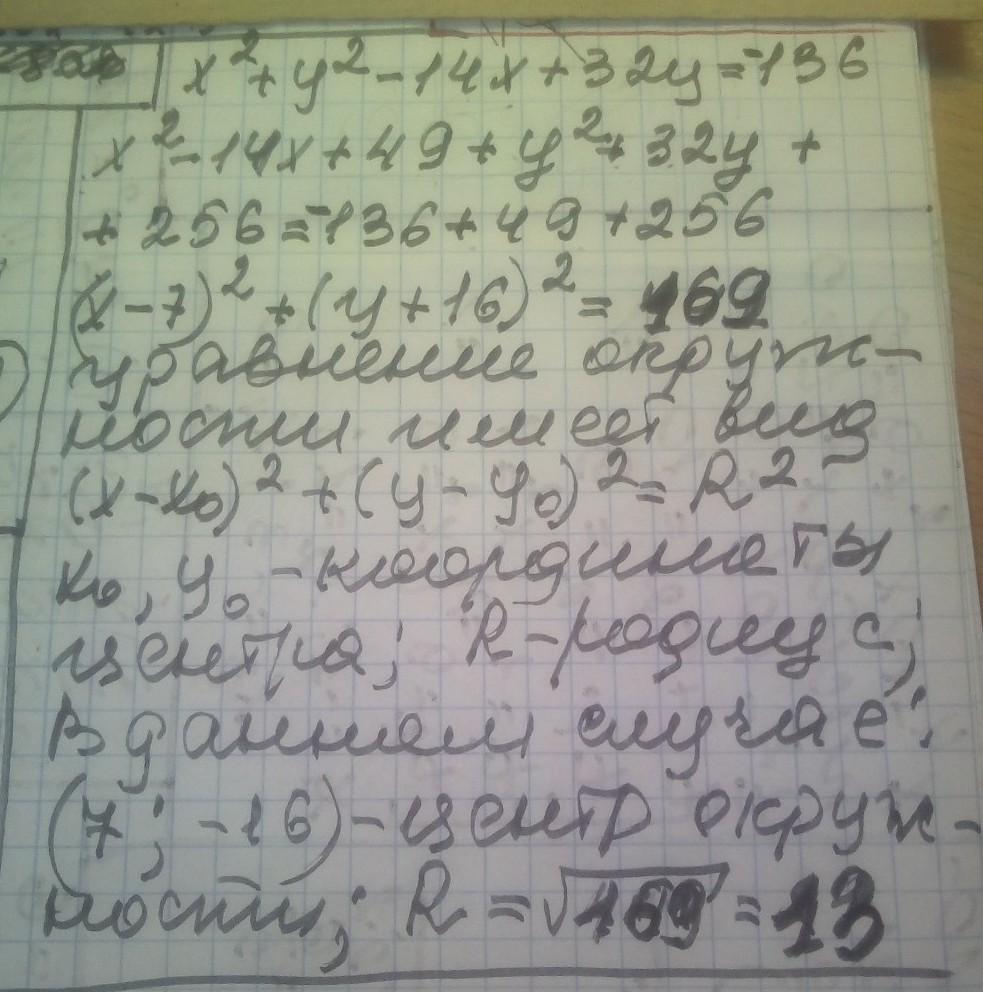 x² + y² - 14x + 32y = -136
x² - 14x + 49 + y² + 32y +
+ 256 = -136 + 49 + 256
(x - 7)² + (y + 16)² = 169
уравнение окруж-
ности имеет вид
(x - x₀)² + (y - y₀)² = R²
x₀, y₀ - координаты
центра; R - радиус;
В данном случае:
(7; -16) - центр окруж-
ности; R = √169 = 13